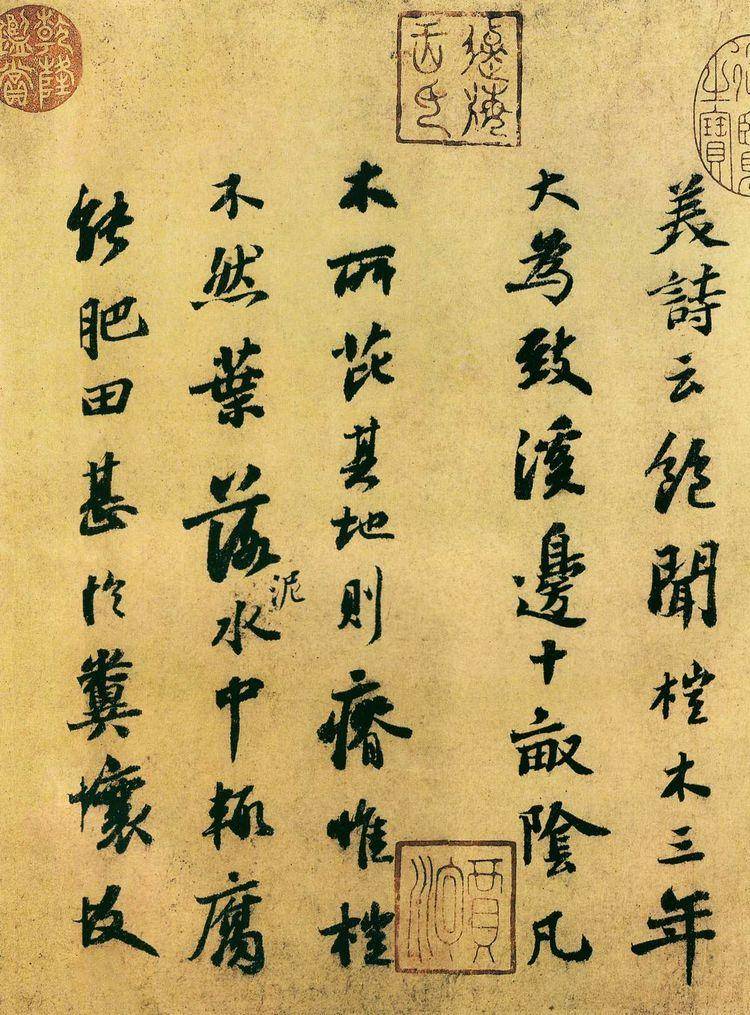 美詩云飽聞榿木三年
大為致溪邊十畝陰凡
木所芘其地則瘠惟榿
不然葉落泥水中輙腐
能肥田甚於糞壤故
乾隆鑑賞